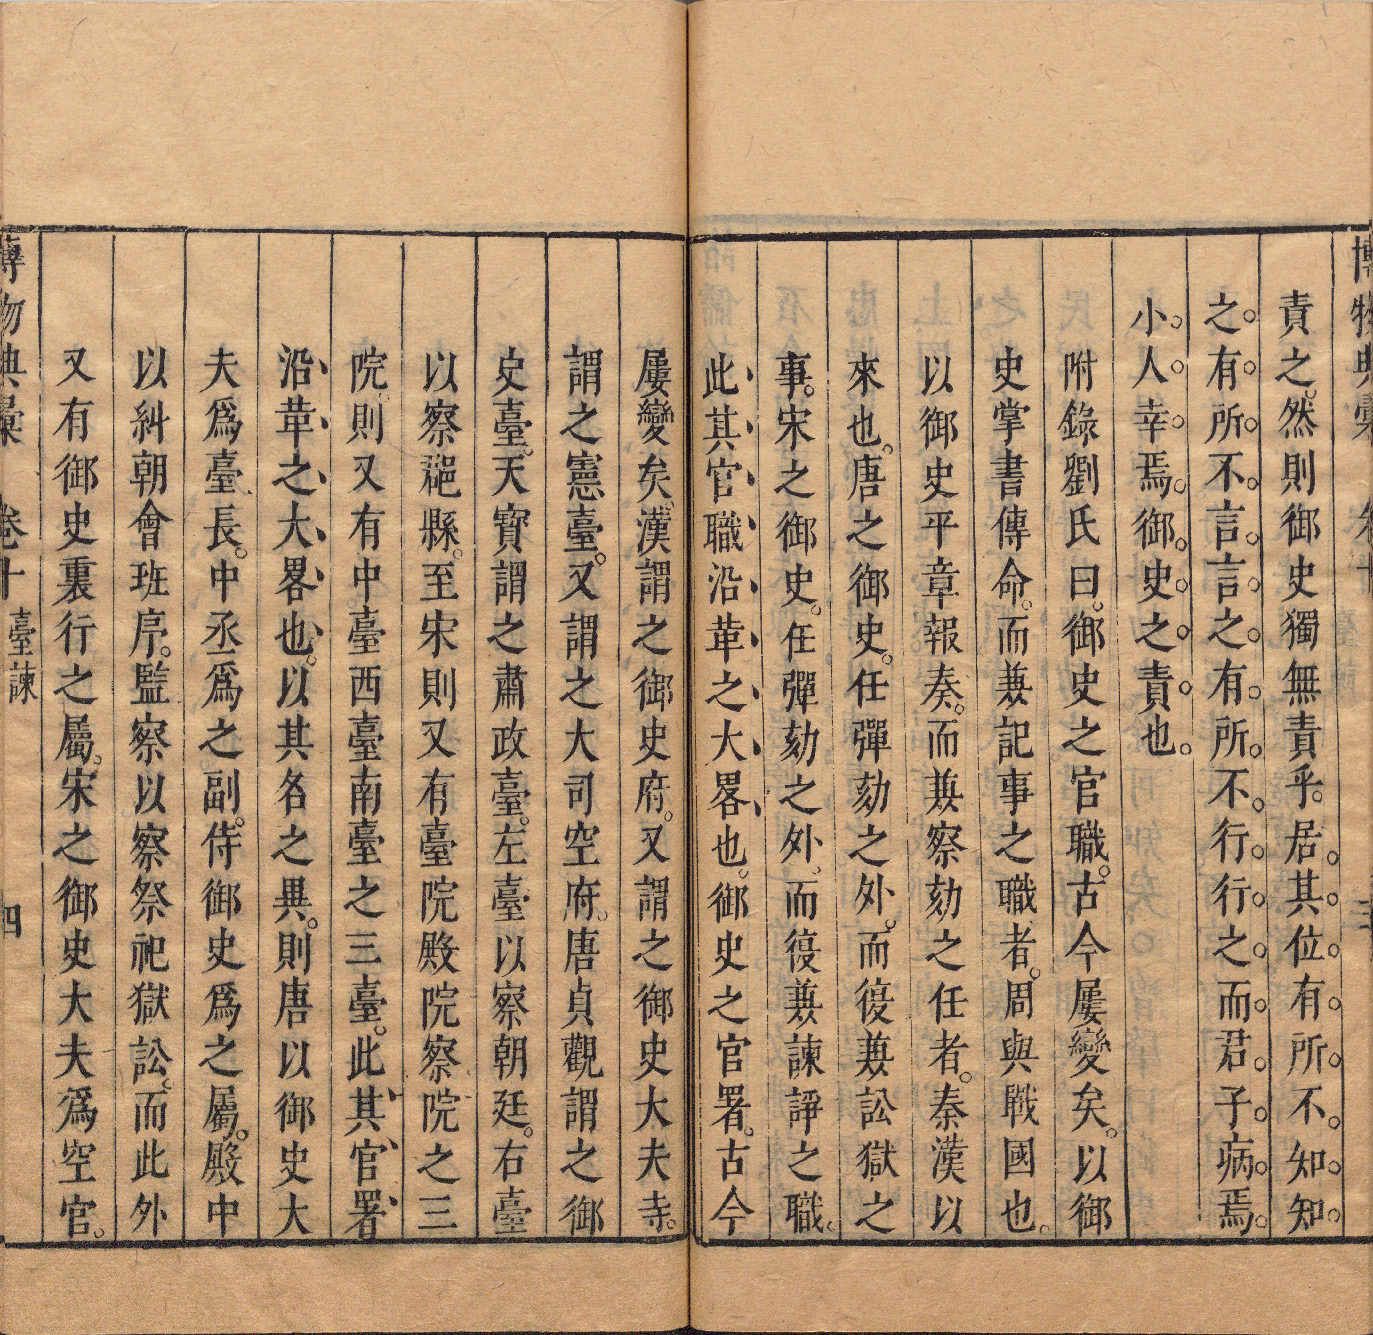 博物典彙 卷十 臺諫 三
責之。然則御史獨無責乎。居其位有所不知知
之有所不言言之有所不行行之而君子病焉
小人幸焉御史之責也。
附錄劉氏曰。御史之官職。古今屢變矣。以御
史掌書傳命。而兼記事之職者。周與戰國也。
以御史平章報奏。而兼察劾之任者。秦漢以
來也。唐之御史。任彈劾之外。而復兼訟獄之
事。宋之御史。任彈劾之外。而復兼諫諍之職。
此其官職沿革之大畧也。御史之官署。古今
屢變矣。漢謂之御史府。又謂之御史大夫寺。
謂之憲臺。又謂之大司空府。唐貞觀謂之御
史臺。天寶謂之肅政臺。左臺以察朝廷。右臺
以察郡縣。至宋則又有臺院殿院察院之三
院。則又有中臺西臺南臺之三臺。此其官署
沿革之大畧也。以其名之異。則唐以御史大
夫爲臺長。中丞爲之副。侍御史爲之屬。殿中
以糾朝會班序。監察以察祭祀獄訟。而此外
又有御史裏行之屬。宋之御史大夫爲空官。
博物典彙 卷十 臺諫 四